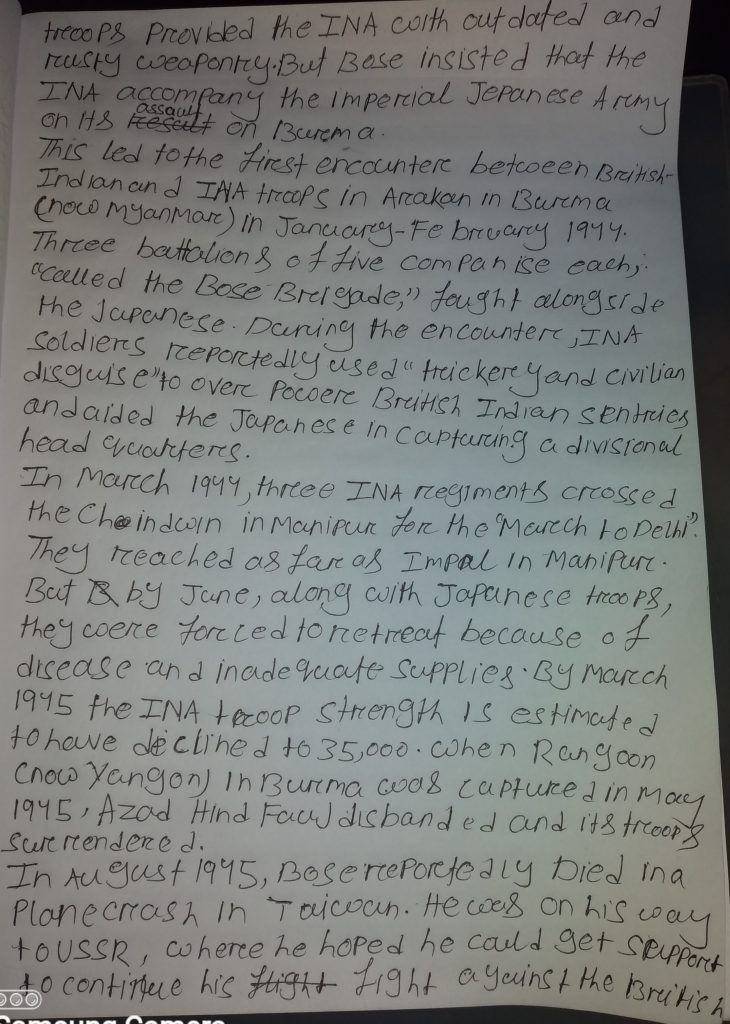 troops Provided the INA with outdated and
rusty weapontry. But Bose insisted that the
INA accompany the imperial Jepanese Army
on its result assault on Burma.
This led to the first encounter between British-
Indian and INA troops in Arakan in Burma
(now Myanmar) in January-February 1944.
Three battalions of five companise each,
"called the Bose Breigade," fought alongside
the Japanese. During the encounter, INA
soldiers reportedly used "trickery and civilian
disguise" to over power British Indian sentries
and aided the Japanese in capturing a divisional
head quarters.
In March 1944, three INA regiments crossed
the Cheindwin in Manipur for the "March to Delhi".
They reached as far as Impal in Manipur.
But B by June, along with Japanese troops,
they were forced to retreat because of
disease and inadequate supplies. By March
1945 the INA troop strength is estimated
to have declined to 35,000. when Rangoon
(now Yangon) in Burma was captured in may
1945, Azad Hind Fauj disbanded and its troops
surrendered.
In August 1945, Bose reportedly Died in a
Plane crash in Taiwan. He was on his way
to USSR, where he hoped he could get support
to continue his flight fight against the British
Samsung Camera